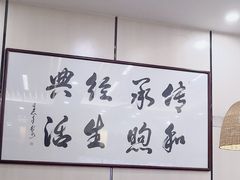 传承经典
和煦生活